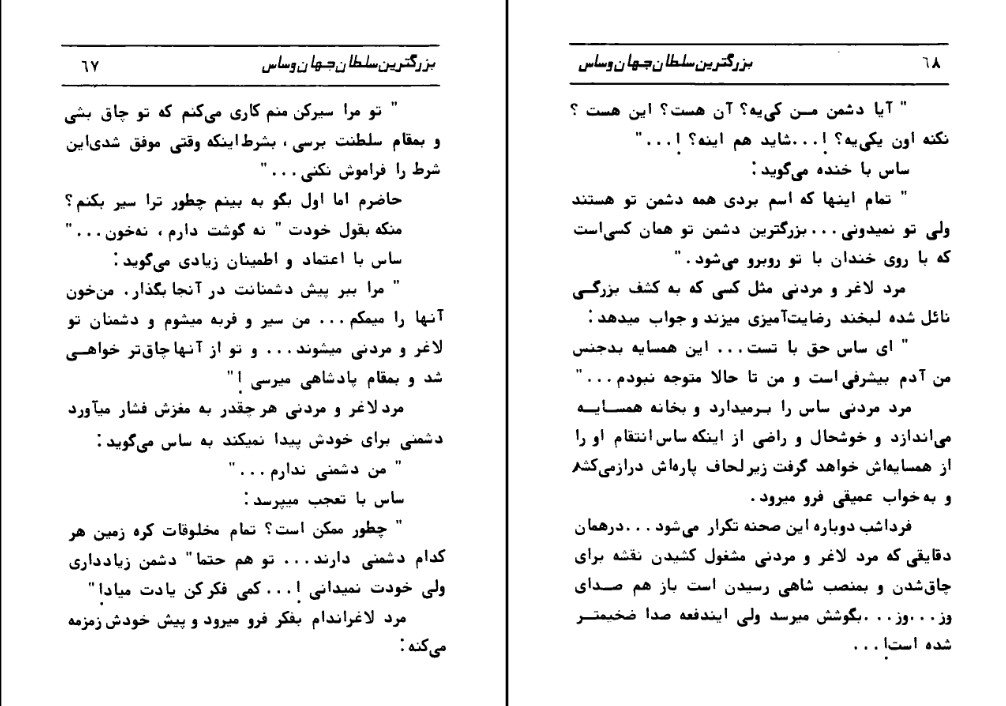 بزرگترین سلطان جهان و ساس
۶۷
" تو مرا سیرکن منم کاری می‌کنم که تو چاق بشی
و بمقام سلطنت برسی، بشرط اینکه وقتی موفق شدی‌این
شرط را فراموش نکنی..."
حاضرم اما اول بگو به بینم چطور ترا سیر بکنم؟
منکه بقول خودت " نه گوشت دارم، نه‌خون..."
ساس با اعتماد و اطمینان زیادی می‌گوید:
" مرا ببر پیش دشمنانت در آنجا بگذار. من‌خون
آنها را میمکم... من سیر و فربه میشوم و دشمنان تو
لاغر و مردنی میشوند... و تو از آنها چاق‌تر خواهی
شد و بمقام پادشاهی میرسی!"
مرد لاغر و مردنی هر چقدر به مغزش فشار میآورد
دشمنی برای خودش پیدا نمیکند به ساس می‌گوید:
" من دشمنی ندارم..."
ساس با تعجب میپرسد:
" چطور ممکن است؟ تمام مخلوقات کره زمین هر
کدام دشمنی دارند... تو هم حتما" دشمن زیادداری
ولی خودت نمیدانی!... کمی فکر کن یادت میاد!"
مرد لاغراندام بفکر فرو میرود و پیش خودش زمزمه
می‌کنه:
بزرگترین سلطان جهان و ساس
۶۸
" آیا دشمن مـن کی‌یه؟ آن هست؟ این هست؟
نکنه اون یکی‌یه؟!...شاید هم اینه؟!..."
ساس با خنده می‌گوید:
" تمام اینها که اسم بردی همه دشمن تو هستند
ولی تو نمیدونی...بزرگترین دشمن تو همان کسی‌است
که با روی خندان با تو روبرو می‌شود."
مرد لاغر و مردنی مثل کسی که به کشف بزرگـی
نائل شده لبخند رضایت‌آمیزی میزند و جواب میدهد:
" ای ساس حق با تست... این همسایه بدجنس
من آدم بیشرفی است و من تا حالا متوجه نبودم..."
مرد مردنی ساس را بـرمیدارد و بخانه همسـایـه
می‌اندازد و خوشحال و راضی از اینکه ساس انتقام او را
از همسایه‌اش خواهد گرفت زیر لحاف پاره‌اش دراز می‌کشد
و به خواب عمیقی فرو میرود.
فرداشب دوباره این صحنه تکرار می‌شود...درهمان
دقایقی که مرد لاغر و مردنی مشغول کشیدن نقشه برای
چاق‌شدن و بمنصب شاهی رسیدن است باز هم صـدای
وز...وز...بگوشش میرسد ولی ایندفعه صدا ضخیمتـر
شده است!...